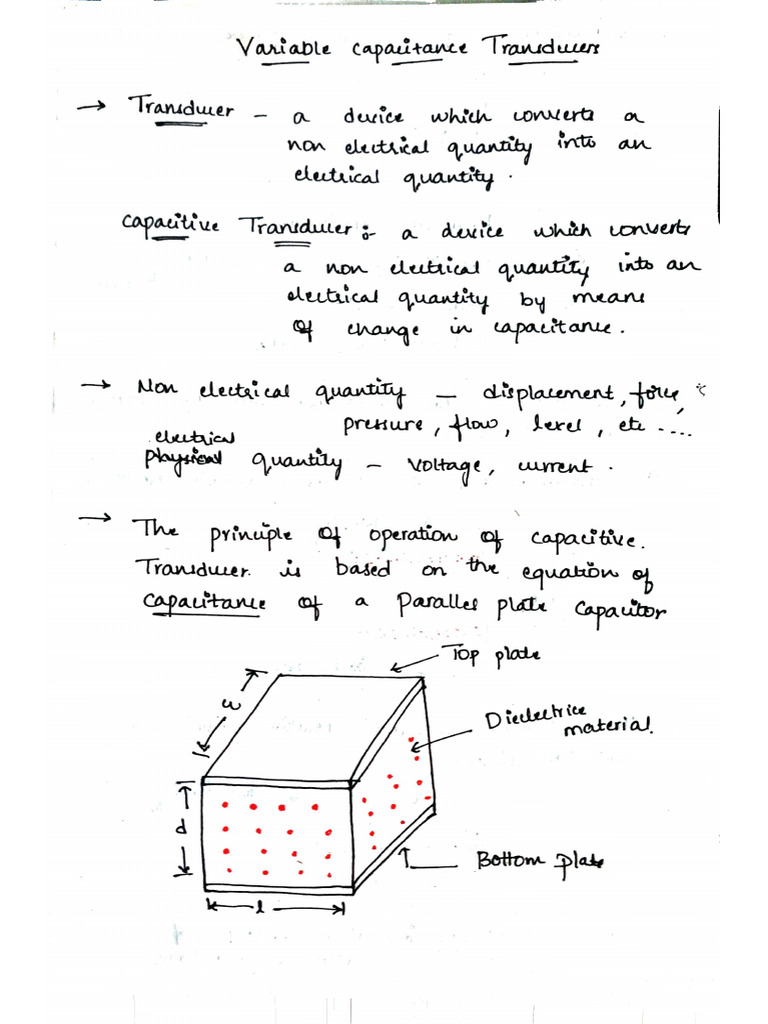 Variable Capacitance Transducers
→ Transducer – a device which converts a
non electrical quantity into an
electrical quantity.
Capacitive Transducer :- a device which converts
a non electrical quantity into an
electrical quantity by means
of change in capacitance.
→ Non electrical quantity – displacement, force,
pressure, flow, level, etc ....
electrical
physical quantity – voltage, current.
→ The principle of operation of capacitive.
Transducer. is based on the equation of
capacitance of a parallel plate capacitor
Top plate
w
Dielectrice
material.
d
Bottom plate
l